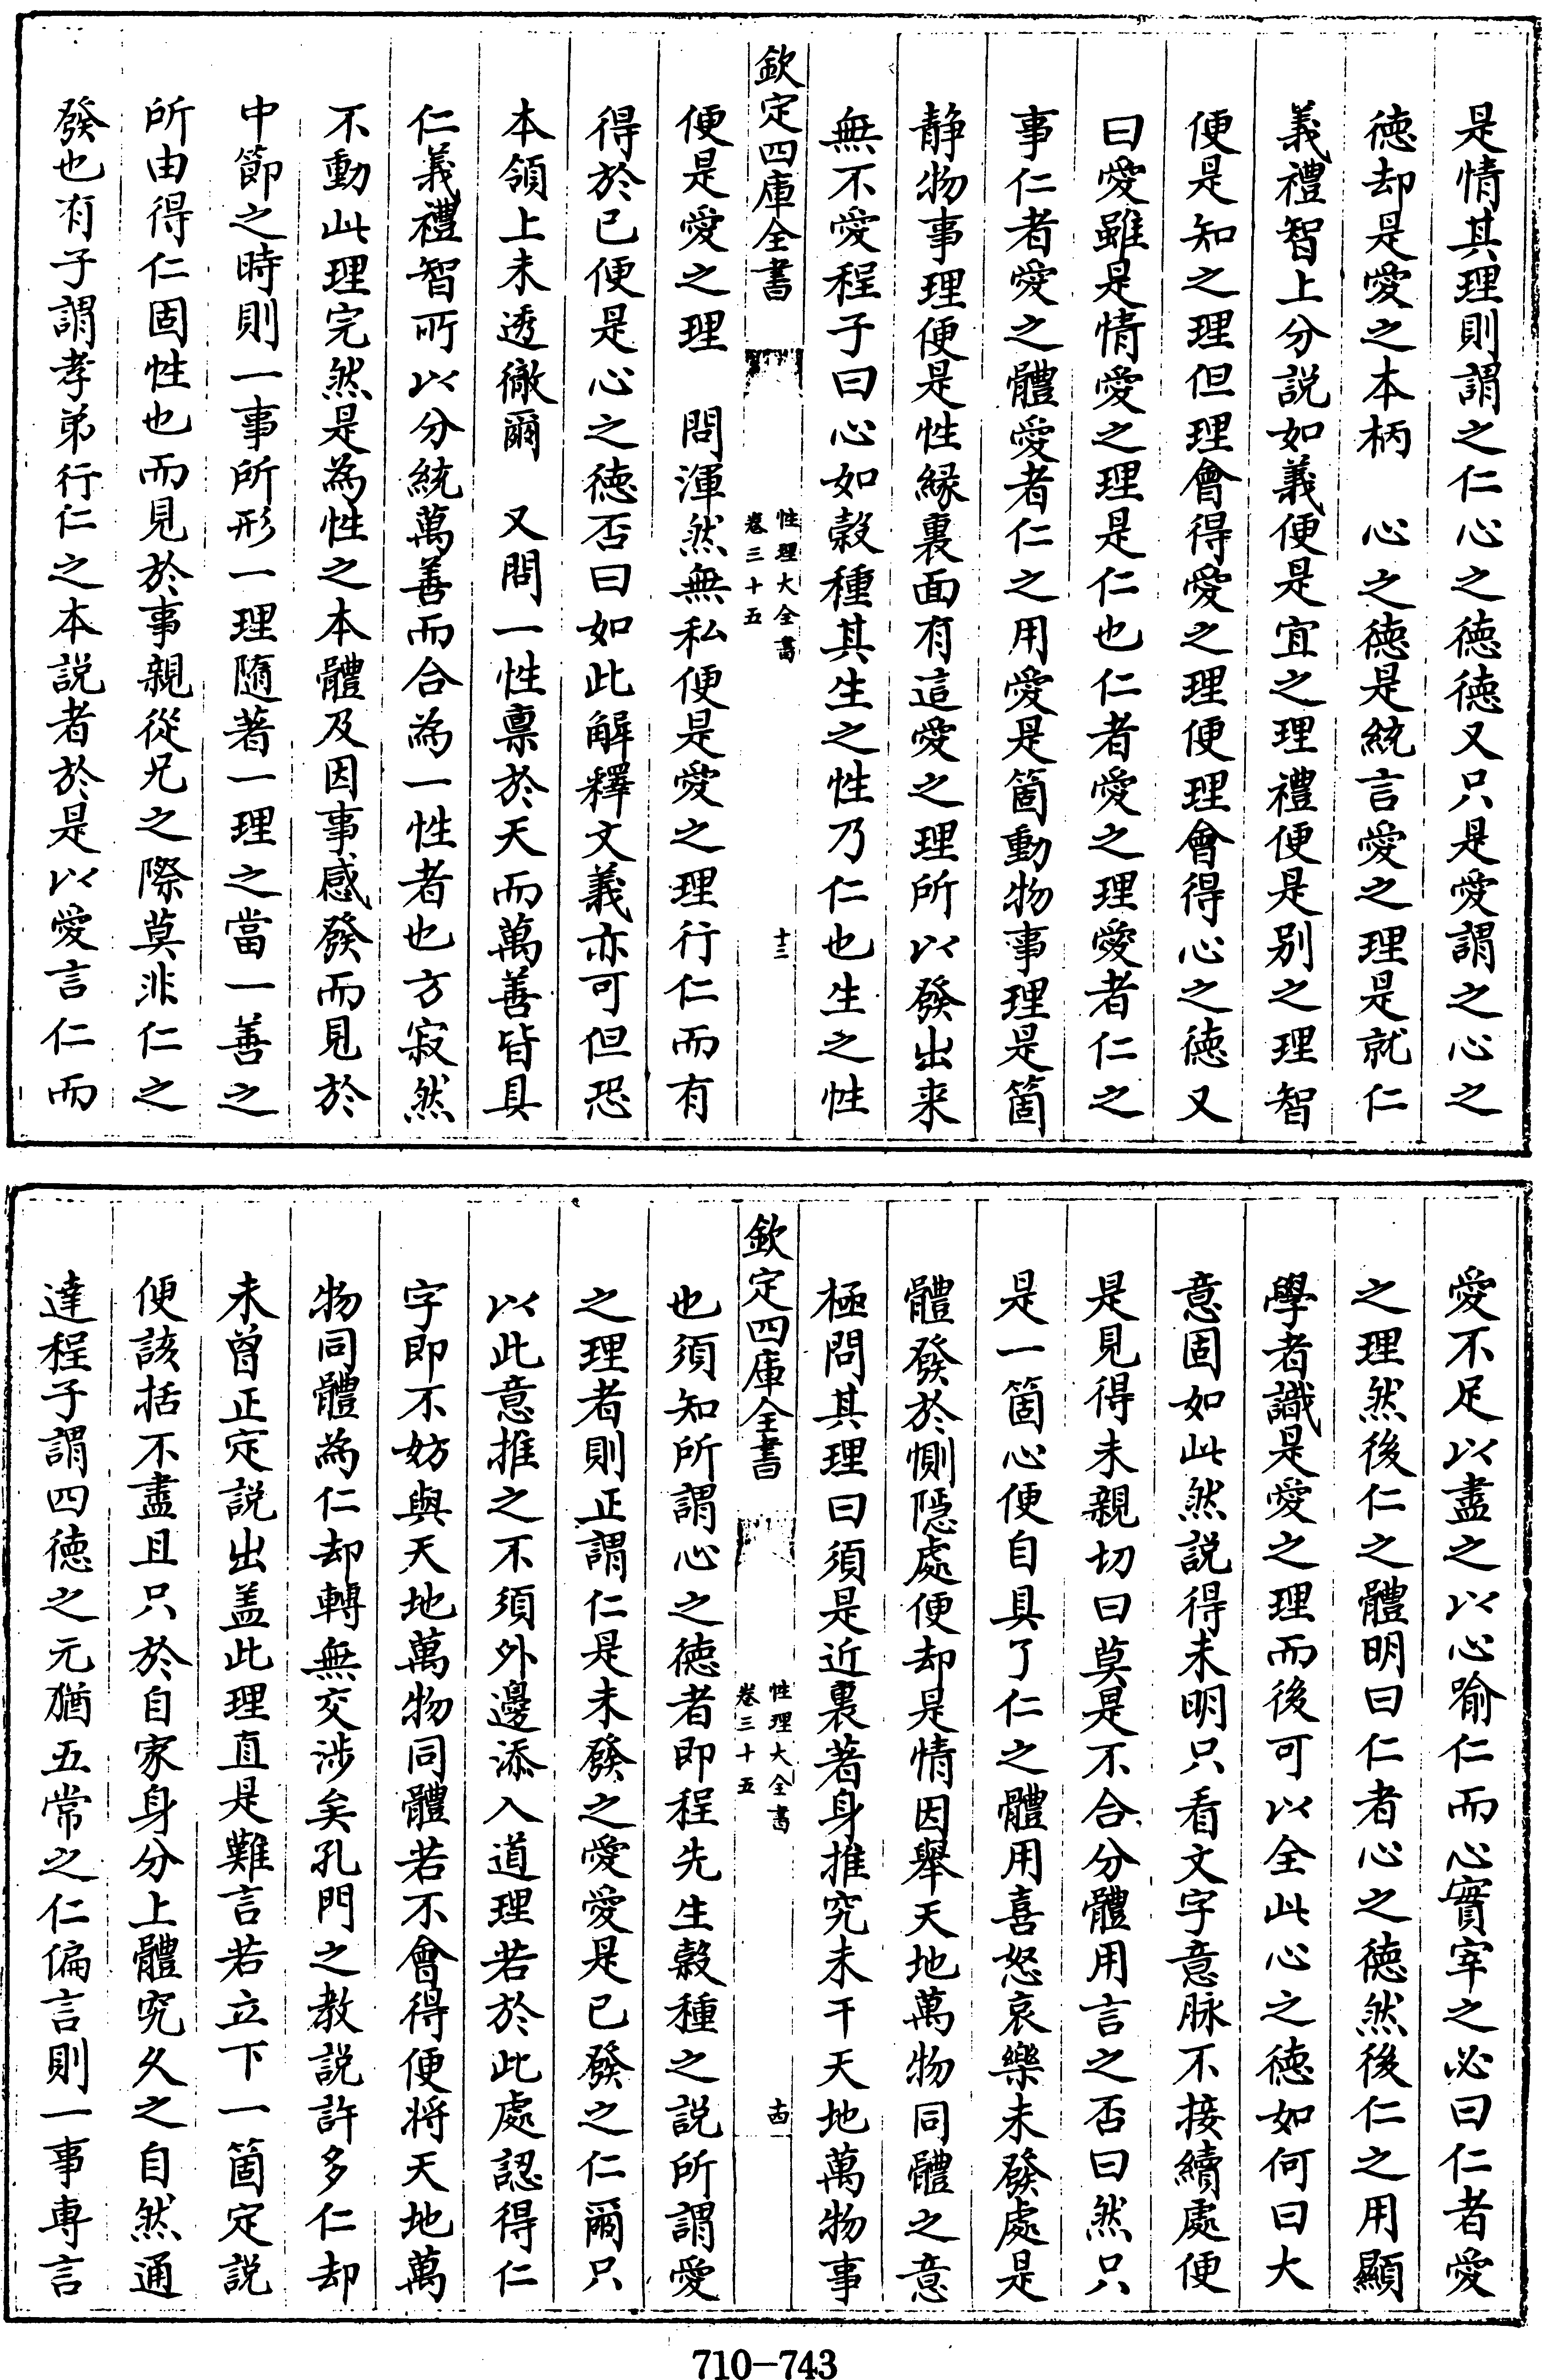 是情其理則謂之仁心之徳徳又只是愛謂之心之
徳却是愛之本柄　心之徳是統言愛之理是就仁
義禮智上分説如義便是宜之理禮便是别之理智
便是知之理但理會得愛之理便理會得心之徳又
曰愛雖是情愛之理是仁也仁者愛之理愛者仁之
事仁者愛之體愛者仁之用愛是箇動物事理是箇
静物事理便是性縁裏面有這愛之理所以發出来
無不愛程子曰心如榖種其生之性乃仁也生之性
欽定四庫全書
性理大全書
卷三十五
十三
便是愛之理　問渾然無私便是愛之理行仁而有
得於已便是心之徳否曰如此解釋文義亦可但恐
本領上未透徹爾　又問一性禀於天而萬善皆具
仁義禮智所以分統萬善而合為一性者也方寂然
不動此理完然是為性之本體及因事感發而見於
中節之時則一事所形一理隨著一理之當一善之
所由得仁固性也而見於事親從兄之際莫非仁之
發也有子謂孝弟行仁之本説者於是以愛言仁而
愛不足以盡之以心喻仁而心實宰之必曰仁者愛
之理然後仁之體明曰仁者心之徳然後仁之用顯
學者識是愛之理而後可以全此心之徳如何曰大
意固如此然説得未明只看文字意脉不接續處便
是見得未親切曰莫是不合分體用言之否曰然只
是一箇心便自具了仁之體用喜怒哀樂未發處是
體發於惻隠處便却是情因舉天地萬物同體之意
極問其理曰須是近裏著身推究未干天地萬物事
欽定四庫全書
性理大全書
卷三十五
十四
也須知所謂心之徳者即程先生榖種之説所謂愛
之理者則正謂仁是未發之愛愛是已發之仁爾只
以此意推之不須外邊添入道理若於此處認得仁
字即不妨與天地萬物同體若不會得便将天地萬
物同體為仁却轉無交涉矣孔門之教説許多仁却
未曾正定説出盖此理直是難言若立下一箇定説
便該括不盡且只於自家身分上體究久之自然通
達程子謂四徳之元猶五常之仁偏言則一事専言
710-743